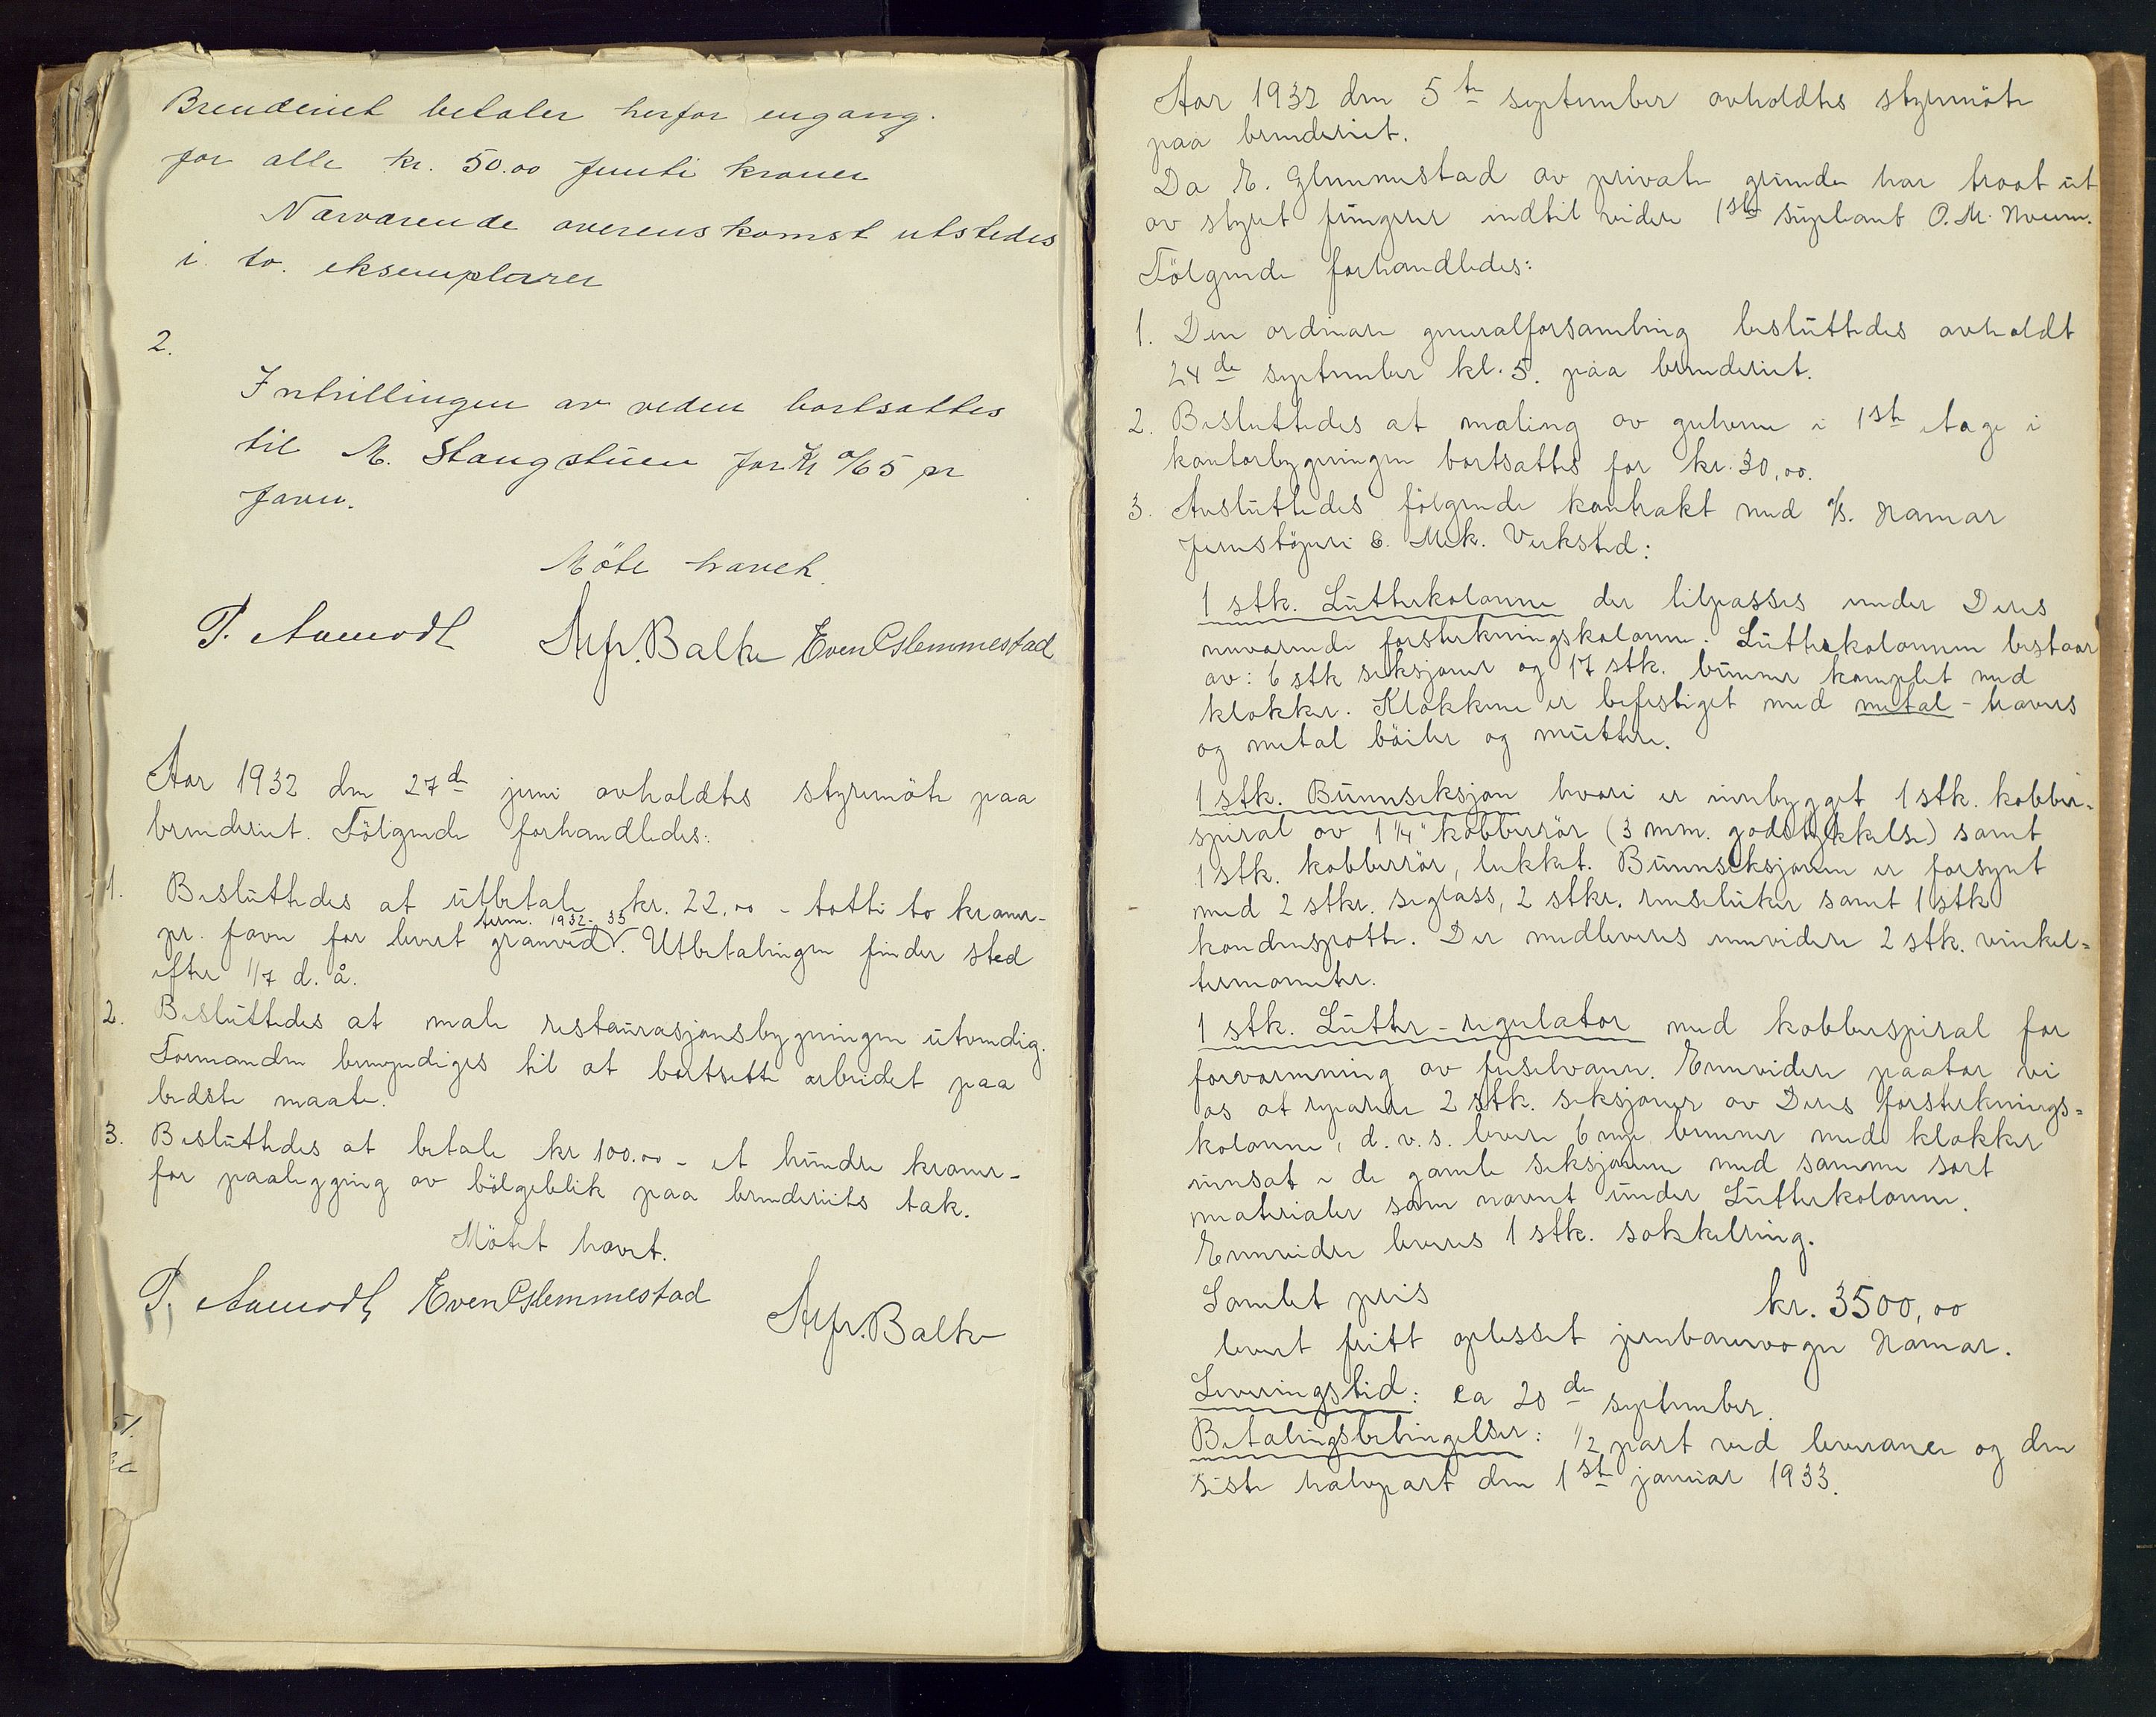 Brenderiet betaler herfor engang.
for alle kr. 50.00 femti kroner
Nærværende overenskomst utstedes
i to. eksemplarer
2.
Intrillingen av veden bortsattes
til M. Stangstuen for Kr 0/65 pr
favn.
Möte hævet.
P. Aamodt Alfr. Balke Even Glemmestad
Aar 1932 den 27de juni avholdtes styremöte paa
brenderiet. Fölgende forhandledes:
1. Besluttedes at utbetale kr. 22,00 - totti to kroner-
term. 1932-33
pr. favn for levert granved. Utbetalingen finder sted
efter 1/7 d. å.
2. Besluttedes at male restaurasjonsbygningen utvendig.
Formanden bemyndiges til at bortsette arbeidet paa
bedste maate.
3. Besluttedes at betale kr 100.00 - et hundre kroner-
for paalegging av bölgeblik paa brenderiets tak.
Mötet hævet.
P. Aamodt Even Glemmestad
Alfr. Balke
51.
Aar 1932 den 5te september avholdtes styremöte
paa brenderiet.
Da E. Glemmestad av private grunde har traat ut
av styret fungerer indtil videre 1ste supleant O. M.
Fölgende forhandledes:
1. Den ordinære generalforsamling besluttedes avholdt
24de september kl. 5. paa brenderiet.
2. Besluttedes at maling av gulvene i 1ste etage i
kontorbygningen bortsattes for kr. 30,00.
3. Avsluttedes fölgende kontrakt med A/S. Hamar
Jernstöperi & Mek. Verksted:
1 stk. Lutterkolonne der tilpasses under Deres
nuværende forsterkningskolonne. Lutterkolonnen bestaar
av: 6 stk seksjoner og 17 stk. bunner komplet med
klokker. Klokkene er befestiget med metal - travers
og metal böiler og muttere.
1 stk. Bunnseksjon hvori er innbygget 1 stk. kobber-
spiral av 1 1/4" kobberrör (3 mm. godstykkelse) samt
1 stk. kobberrör, lukket. Bunnseksjonen er forsynt
med 2 stkr. seglass, 2 stkr. renseluker samt 1 stk
kondenspotte. Der medleveres ennvidere 2 stk. vinkel=
termometer.
1 stk. Lutter-regulator med kobberspiral for
forvarmning av fuselvann. Ennvidere paatar vi
os at reparere 2 stk. seksjoner av Deres forsterknings=
kolonne, d. v. s. levere 6 nye bunner med klokker
innsat i de gamle seksjonene med samme sort
materialer som nævnt under Lutterkolonne.
Ennvidere leveres 1 stk. sokkelring.
Samlet pris kr. 3500,00
levert fritt oplesset jernbanevogn Hamar.
Leveringstid: ca 20de september.
Betalingsbetingelser: 1/2 part ved leveranse og den
siste halvpart den 1ste januar 1933.